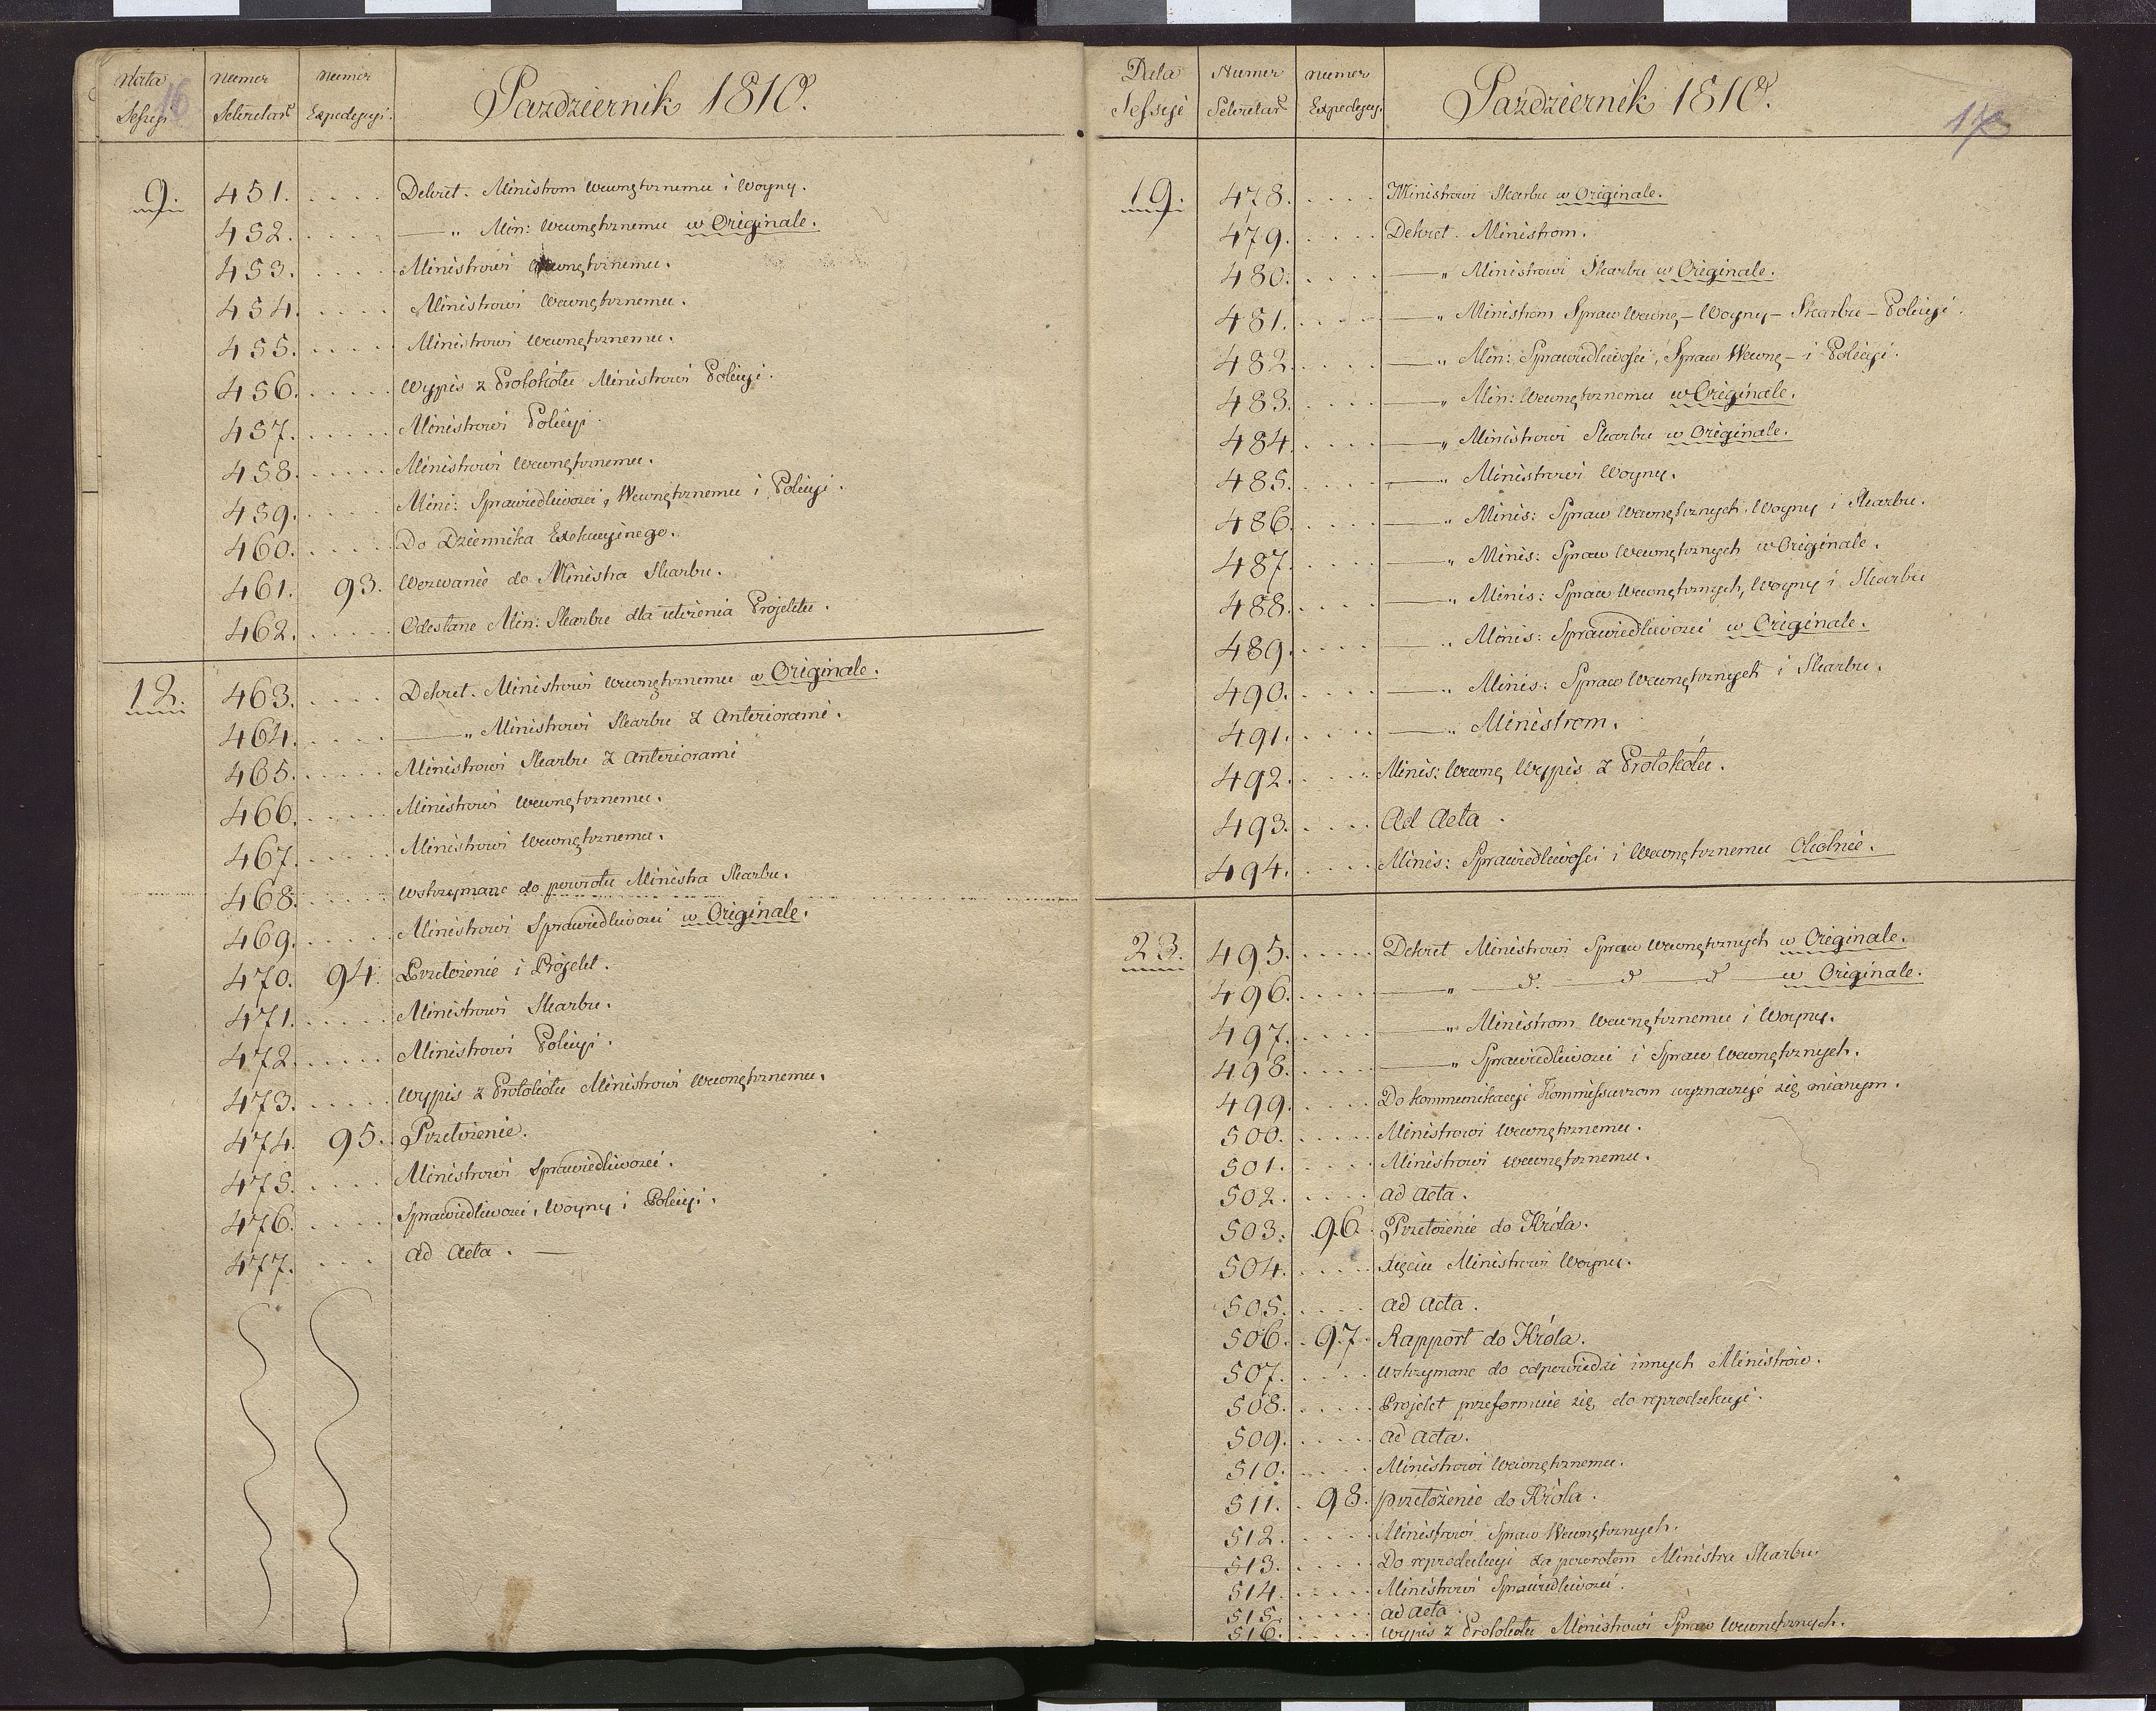 Data Sessyi
Numer Sekretarᵃ
Numer Expedycyi.
Pazdziernik 1810.
16
9. 451. . . . . Dekret. Ministrom Wewnętrznemu i Woyny.
452. . . . . —„ Min: Wewnętrznemu w Originale.
453. . . . . Ministrowi Wewnętrznemu.
454. . . . . Ministrowi Wewnętrznemu.
455. . . . . Ministrowi Wewnętrznemu.
456. . . . . Wypis z Protokółu Ministrowi Policyi.
457. . . . . Ministrowi Policyi.
458. . . . . Ministrowi Wewnętrznemu.
459. . . . . Mini: Sprawiedliwości, Wewnętrznemu i Policyi.
460. . . . . Do Dziennika Exekucyinego.
461. 93. Wezwanie do Ministra Skarbu.
462. . . . . Odesłane Min: Skarbu dla ułożenia Projektu.
12. 463. . . . . Dekret. Ministrowi Wewnętrznemu w Originale.
464. . . . . —„ Ministrowi Skarbu z Anteriorami.
465. . . . . Ministrowi Skarbu z Anteriorami
466. . . . . Ministrowi Wewnętrznemu.
467. . . . . Ministrowi Wewnętrznemu.
468. . . . . Wstrzymane do powrotu Ministra Skarbu.
469. . . . . Ministrowi Sprawiedliwości w Originale.
470. 94. Przełożenie i Projekt.
471. . . . . Ministrowi Skarbu.
472. . . . . Ministrowi Policyi.
473. . . . . Wypis z Protokółu Ministrowi Wewnętrznemu.
474. 95. Przełożenie.
475. . . . . Ministrowi Sprawiedliwości.
476. . . . . Sprawiedliwości, Woyny i Policyi.
477. . . . Ad Acta. —
Data Sessyi
Numer Sekretarᵃ
Numer Expedycyi.
Pazdziernik 1810.
17
19. 478. . . . . Ministrowi Skarbu w Originale.
479. . . . . Dekret. Ministrom.
480. . . . . —„ Ministrowi Skarbu w Originale.
481. . . . . —„ Ministrom Spraw Wewnę – Woyny – Skarbu – Policyi.
482. . . . . —„ Min: Sprawiedliwości, Spraw Wewnę – i Policyi.
483. . . . . —„ Min: Wewnętrznemu w Originale.
484. . . . . —„ Ministrowi Skarbu w Originale.
485. . . . . —„ Ministrowi Woyny.
486. . . . . —„ Minis: Spraw Wewnętrznych, Woyny i Skarbu.
487. . . . . —„ Minis: Spraw Wewnętrznych w Originale.
488. . . . . —„ Minis: Spraw Wewnętrznych, Woyny i Skarbu
489. . . . . —„ Minis: Sprawiedliwości w Originale.
490. . . . . —„ Minis: Spraw Wewnętrznych i Skarbu.
491. . . . . —„ Ministrom.
492. . . . . Minis: Wewnę Wypis z Protokółu.
493. . . . . Ad Acta.
494. . . . . Minis: Sprawiedliwości i Wewnętrznemu Okolnie.
23. 495. . . . . Dekret Ministrowi Spraw Wewnętrznych w Originale.
496. . . . . —„ — d. — d — d — w Originale.
497. . . . . —„ Ministrom Wewnętrznemu i Woyny.
498. . . . . —„ Sprawiedliwości i Spraw Wewnętrznych.
499. . . . . Do kommunikacyi Kommissarzom wyznaczyć się mianym.
500. . . . . Ministrowi Wewnętrznemu.
501. . . . . Ministrowi Wewnętrznemu.
502. . . . . Ad Acta.
503. 96. Przełożenie do Króla.
504. . . . . Xięciu Ministrowi Woyny.
505. . . . . Ad Acta.
506. 97. Rapport do Króla.
507. . . . . Wstrzymane do odpowiedzi innych Ministrów.
508. . . . . Projekt przeformuie się do reprodukcyi.
509. . . . . Ad Acta.
510. . . . . Ministrowi Wewnętrznemu.
511. 98. przełożenie do Króla.
512. . . . . Ministrowi Spraw Wewnętrznych.
513. . . . . Do reprodukcyi za powrotem Ministra Skarbu.
514. . . . . Ministrowi Sprawiedliwości.
515. . . . . Ad Acta.
516. . . . . Wypis z Protokółu Ministrowi Spraw Wewnętrznych.